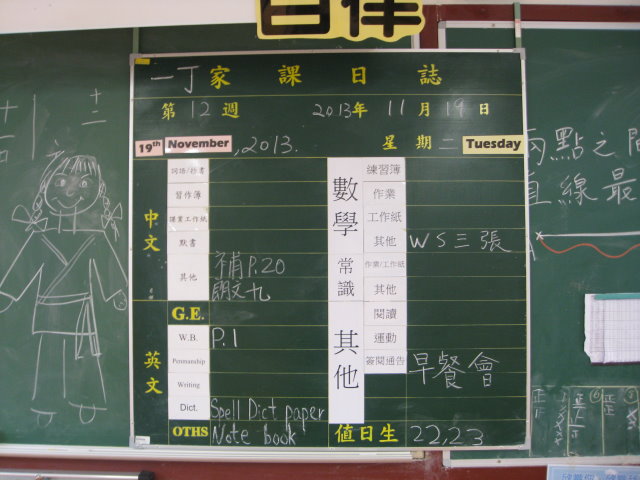 自律
一丁家課日誌
第12週 2013年11月19日
19th November, 2013. 星期二 Tuesday
中文
詞語/抄書
習作簿
默書
其他 補P.20
朗文九
G.E.
英文
W.B. P.1
Penmanship
Writing
Dict. Spell Dict paper
OTHS Note book
數學
練習簿
作業
工作紙
其他 WS三張
常識
作業/工作紙
其他
其他
閱讀
運動
簽閱通告 早餐會
值日生 22,23
兩點之間
直線最